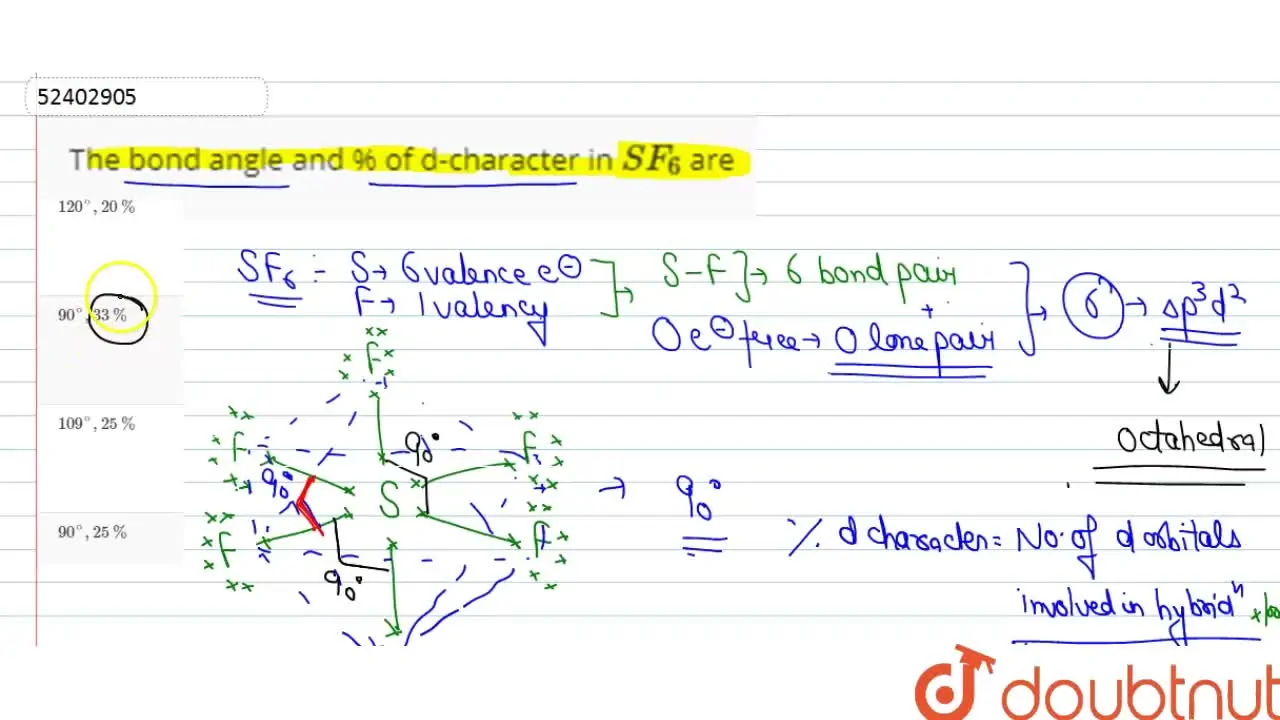 52402905
The bond angle and % of d-character in SF₆ are
120°, 20 %
90°, 33 %
109°, 25 %
90°, 25 %
SF₆ :- S→ 6 valence e⊖
F→ 1 valency
S-F → 6 bond pair
+
0 e⊖ free → 0 lone pair
6 → sp³d²
Octahedral
F
F
F
90°
90°
S
F
F
90°
→ 90°
% d character = No. of d orbitals
involved in hybridⁿ
doubtnut